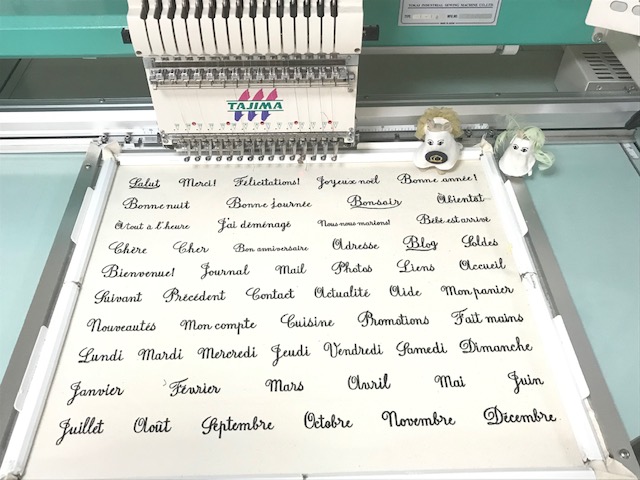 TOKAI INDUSTRIAL SEWING MACHINE CO.,LTD.
TAJIMA
Salut Merci! Félicitations! Joyeux noël Bonne année!
Bonne nuit Bonne journée Bonsoir Àbientôt
À tout à l'heure J'ai déménagé Nous nous marions! Bébé est arrivé
Chère Cher Bon anniversaire Adresse Blog Soldes
Bienvenue! Journal Mail Photos Liens Accueil
Suivant Précédent Contact Actualité Aide Mon panier
Nouveautés Mon compte Cuisine Promotions Fait mains
Lundi Mardi Mercredi Jeudi Vendredi Samedi Dimanche
Janvier Février Mars Avril Mai Juin
Juillet Août Septembre Octobre Novembre Décembre